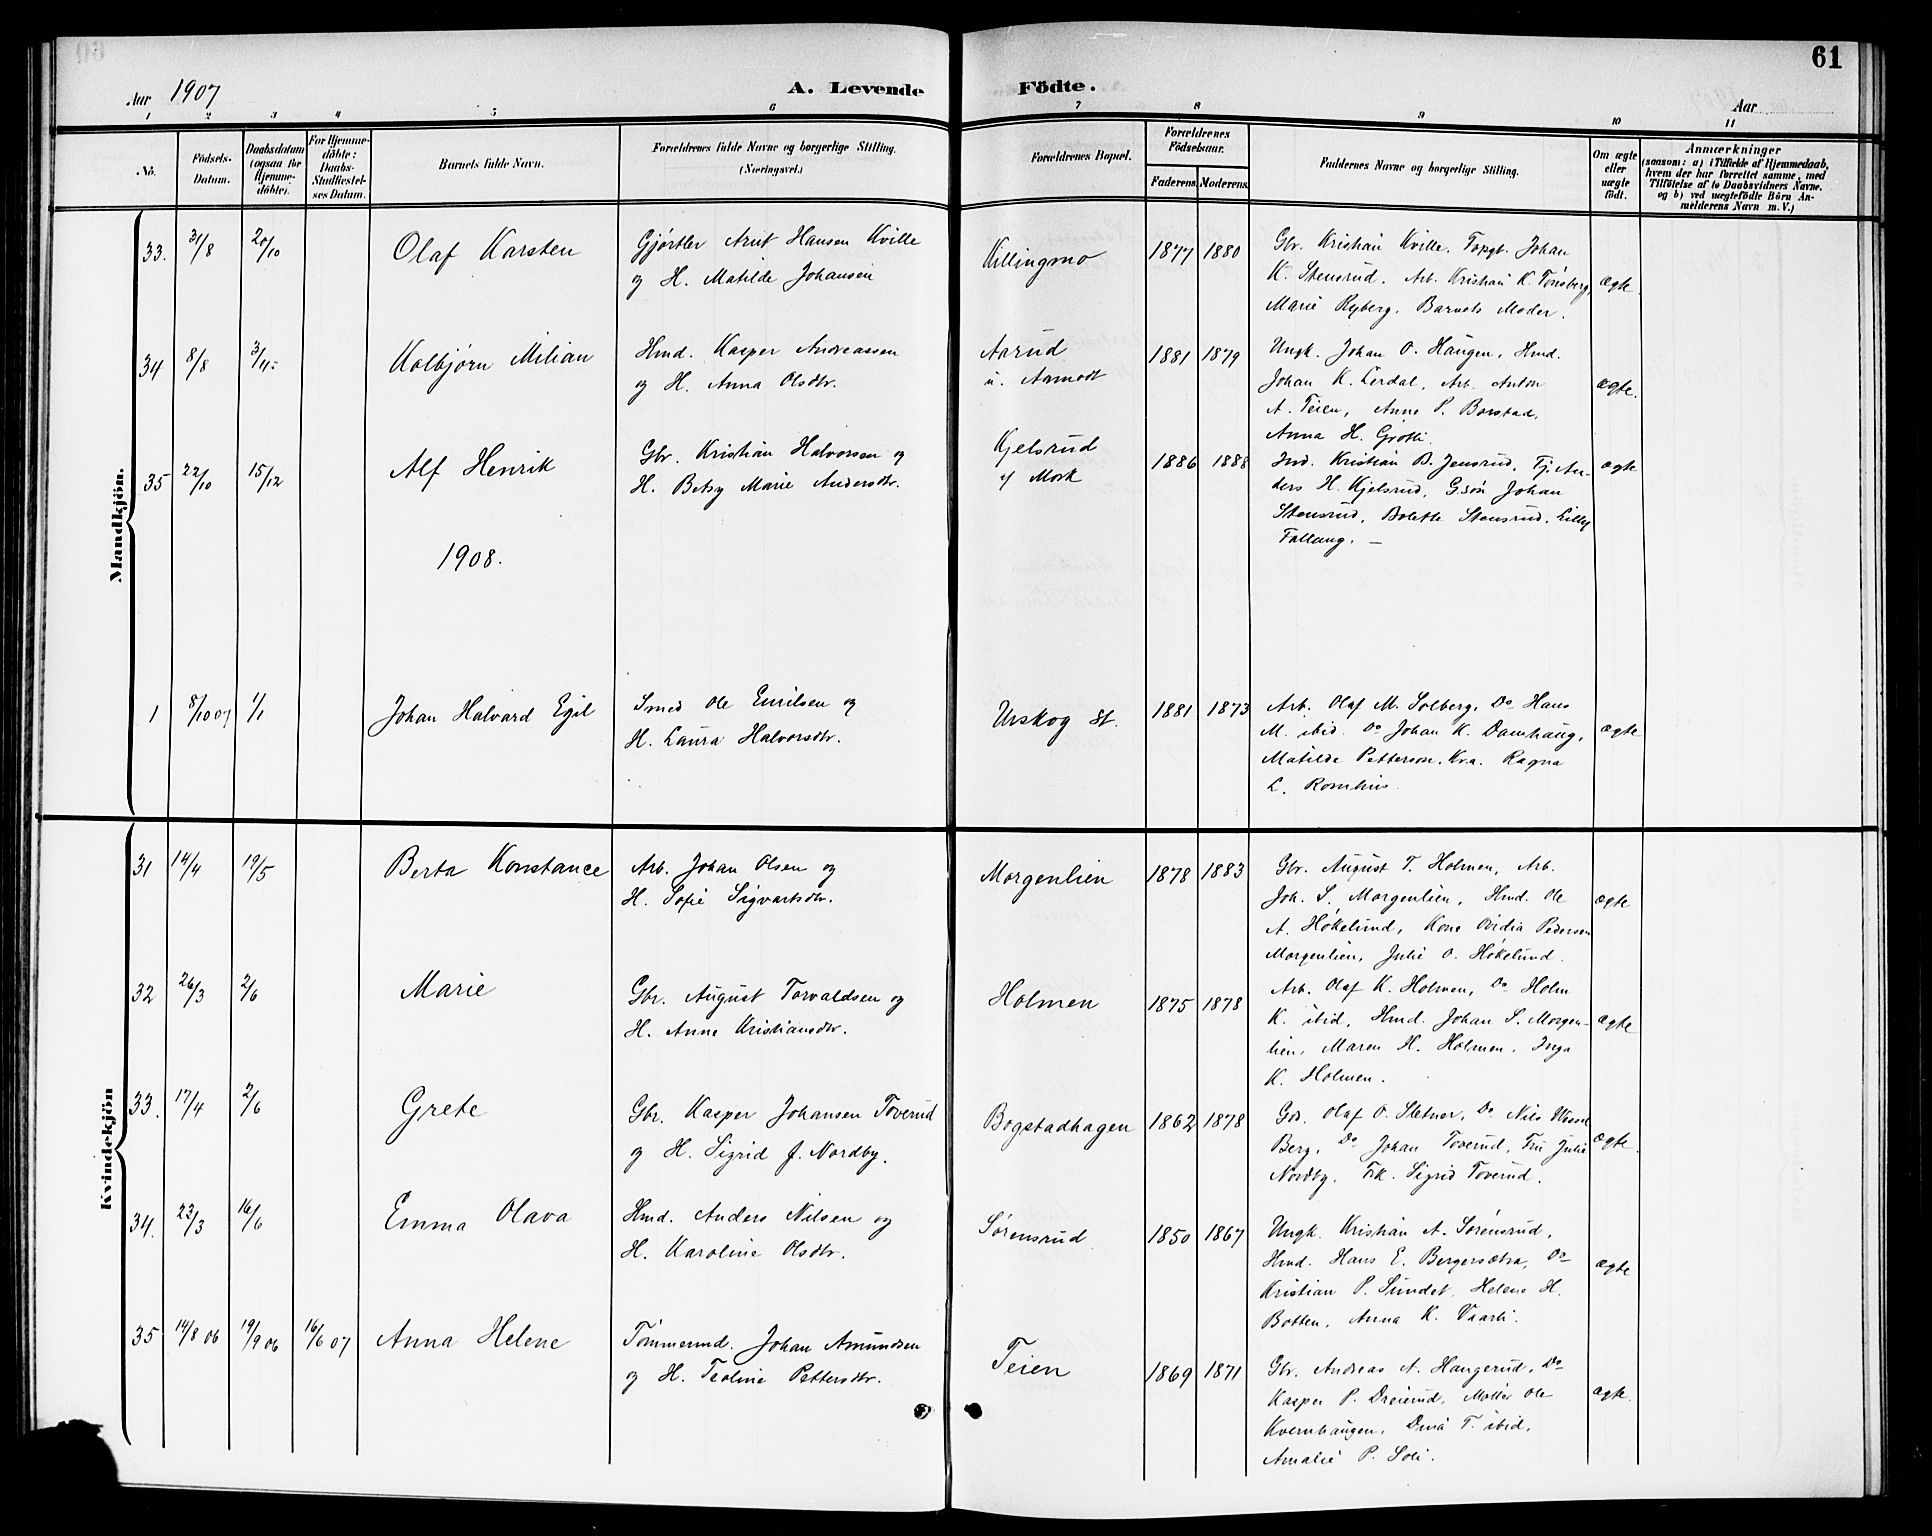 61
Aar 1907
A. Levende Födte.
Aar
1 2 3 4 5 6 7 8 9 10 11
No.
Födsels-Datum.
Daabsdatum (ogsaa for Hjemme-döbte).
For Hjemme-döbte: Daabs-Stadfæstel-ses Datum.
Barnets fulde Navn.
Forældrenes fulde Navne og borgerlige Stilling.
(Næringsvei.)
Forældrenes Bopæl.
Forældrenes Födselsaar.
Faderens. Moderens.
Faddernes Navne og borgerlige Stilling.
Om ægte eller uægte födt.
Anmærkninger
(saasom: a) i Tilfælde af Hjemmedaab,
hvem der har forrettet samme, med
Tilföielse af to Daabsvidners Navne,
og b) ved uægtefödte Börn An-
melderens Navn m. V.)
Mandkjön.
33. 31/8 20/10 Olaf Karsten
Gjørtler Arnt Hansen Kville
og H. Matilde Johansen
Killingmo
1877 1880
Gbr. Kristian Kville, Forpgt. Johan
K. Stensrud, Arb. Kristian K. Tønsberg,
Marie Ryberg, Barnets Moder.
ægte.
34 8/8 3/11 Kolbjørn Milian
Hmd. Kasper Andreassen
og H. Anna Olsdtr.
Aarud
u. Aamodt
1881 1879
Ungk. Johan O. Haugen, Hmd.
Johan K. Lerdal, Arb. Anton
A. Teien, Anne P. Borstad,
Anna H. Grøtli.
ægte.
35 22/10 15/12 Alf Henrik
Gbr. Kristian Halvorsen og
H. Betsy Marie Andersdtr.
Kjelsrud
af Mork
1886 1888
Ind. Kristian B. Jensrud, Tj. An-
ders H. Kjelsrud, Gsøn Johan
Stensrud, Bolette Stensrud, Lilly
Fallang. –
ægte
1908.
1 8/10 07 1/1 Johan Halvard Egil
Smed Ole Emilsen og
H. Laura Halvorsdtr.
Urskog st.
1881 1873
Arb. Olaf M. Solberg, Do Hans
M. ibid. Do Johan K. Damhaug,
Matilde Petterson, Kra. Ragna
L. Romhus.
ægte
Kvindekjön
31 14/4 19/5 Berta Konstance
Arb. Johan Olsen og
H. Sofie Sigvartsdtr.
Morgenlien
1878 1883
Gbr. August T. Holmen, Arb.
Joh. S. Morgenlien, Hmd. Ole
A. Høkelund, Kone Ovidia Pedersen
Morgenlien, Julie O. Høkelund.
ægte
32 26/3 2/6 Marie
Gbr. August Torvaldsen og
H. Anne Kristiansdtr.
Holmen
1875 1878
Arb. Olaf K. Holmen, Do Holm
K. ibid, Hmd. Johan S. Morgen-
lien, Maren H. Holmen, Inga
K. Holmen.
ægte
33. 17/4 2/6 Grete
Gbr. Kasper Johansen Toverud
og H. Sigrid J. Nordby.
Bogstadhagen
1862 1878
Gds. Olaf O. Sletner, Do Nils Wessel
Berg, Do Johan Toverud, Fru Julie
Nordby, Frk. Sigrid Toverud.
ægte.
34. 23/3 16/6 Emma Olava
Hmd. Anders Nilsen og
H. Karoline Olsdtr.
Sørensrud
1850 1867
Ungk. Kristian A. Sørensrud,
Hmd. Hans E. Bergersætra, Do
Kristian P. Sundet, Helene H.
Botten, Anna K. Vaarli.
ægte
35 14/8 06 19/9 06 16/6 07 Anna Helene
Tømmermd. Johan Amundsen
og H. Teoline Pettersdtr.
Teien
1869 1871
Gbr. Andreas A. Haugerud, Do
Kasper P. Dreierud, Møller Ole
Kvernhaugen, Dina T. ibid,
Amalie P. Soli.
ægte.